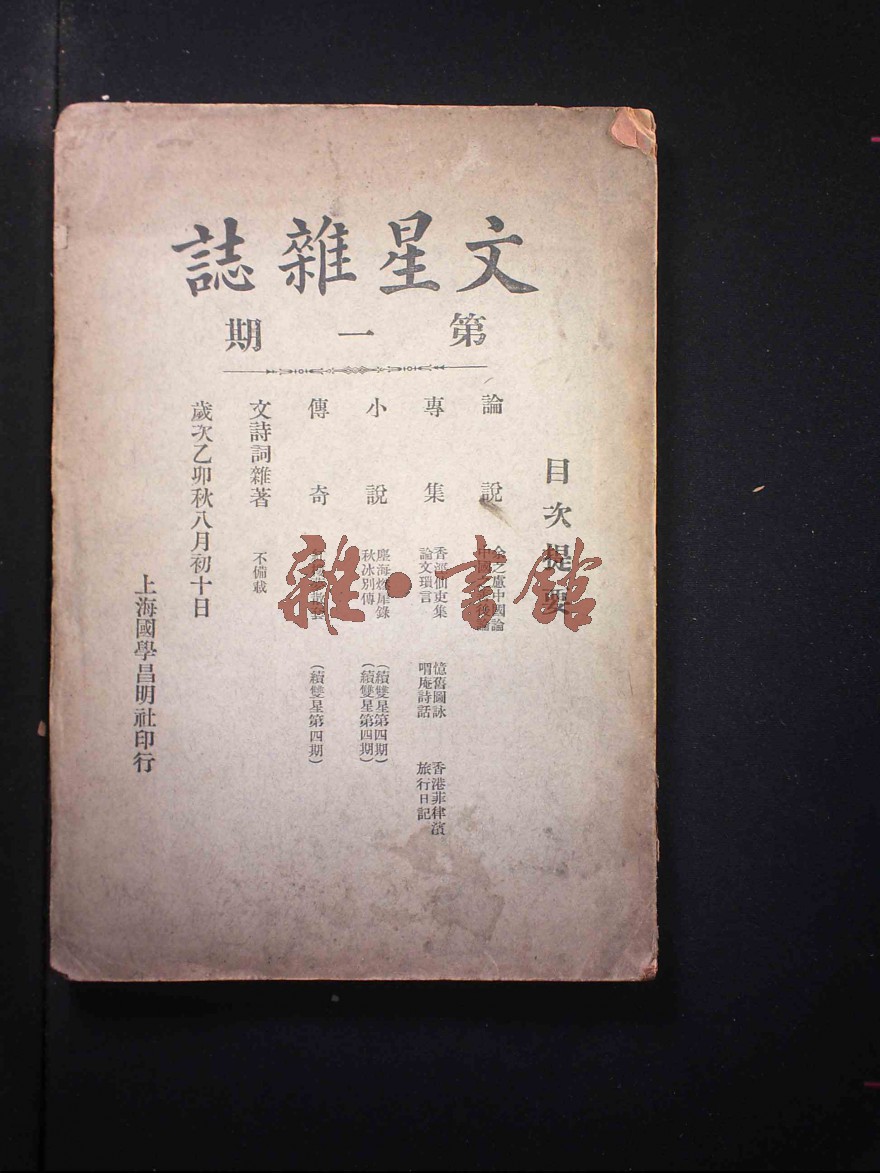 文星雜誌
第一期
目次提要
論說
余之處中國論
專集
香涇仙吏集
論文瑣言
憶舊圖詠
喟庵詩話
香港菲律濱
旅行日記
小說
塵海燃犀錄
(續雙星第四期)
秋冰別傳
(續雙星第四期)
傳奇
(續雙星第四期)
文詩詞雜著
不備載
歲次乙卯秋八月初十日
上海國學昌明社印行
雜·書館